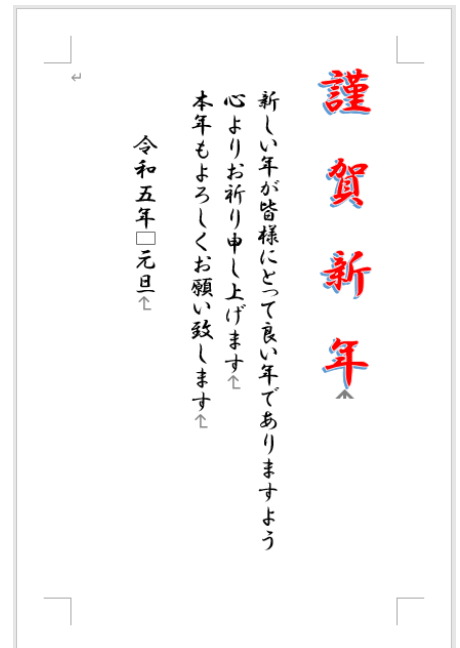 謹賀新年
新しい年が皆様にとって良い年でありますよう
心よりお祈り申し上げます
本年もよろしくお願い致します
令和五年□元旦